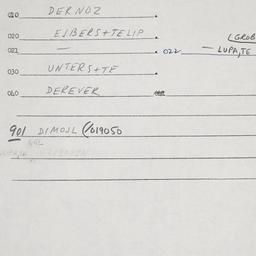 010 DERNOZ .
020 EJBERS+TELIP .
021 — . 022 — LUPA,TE
(GROB
030 UNTERS+TF .
040 DEREVER
901 DIMOJL (2019050